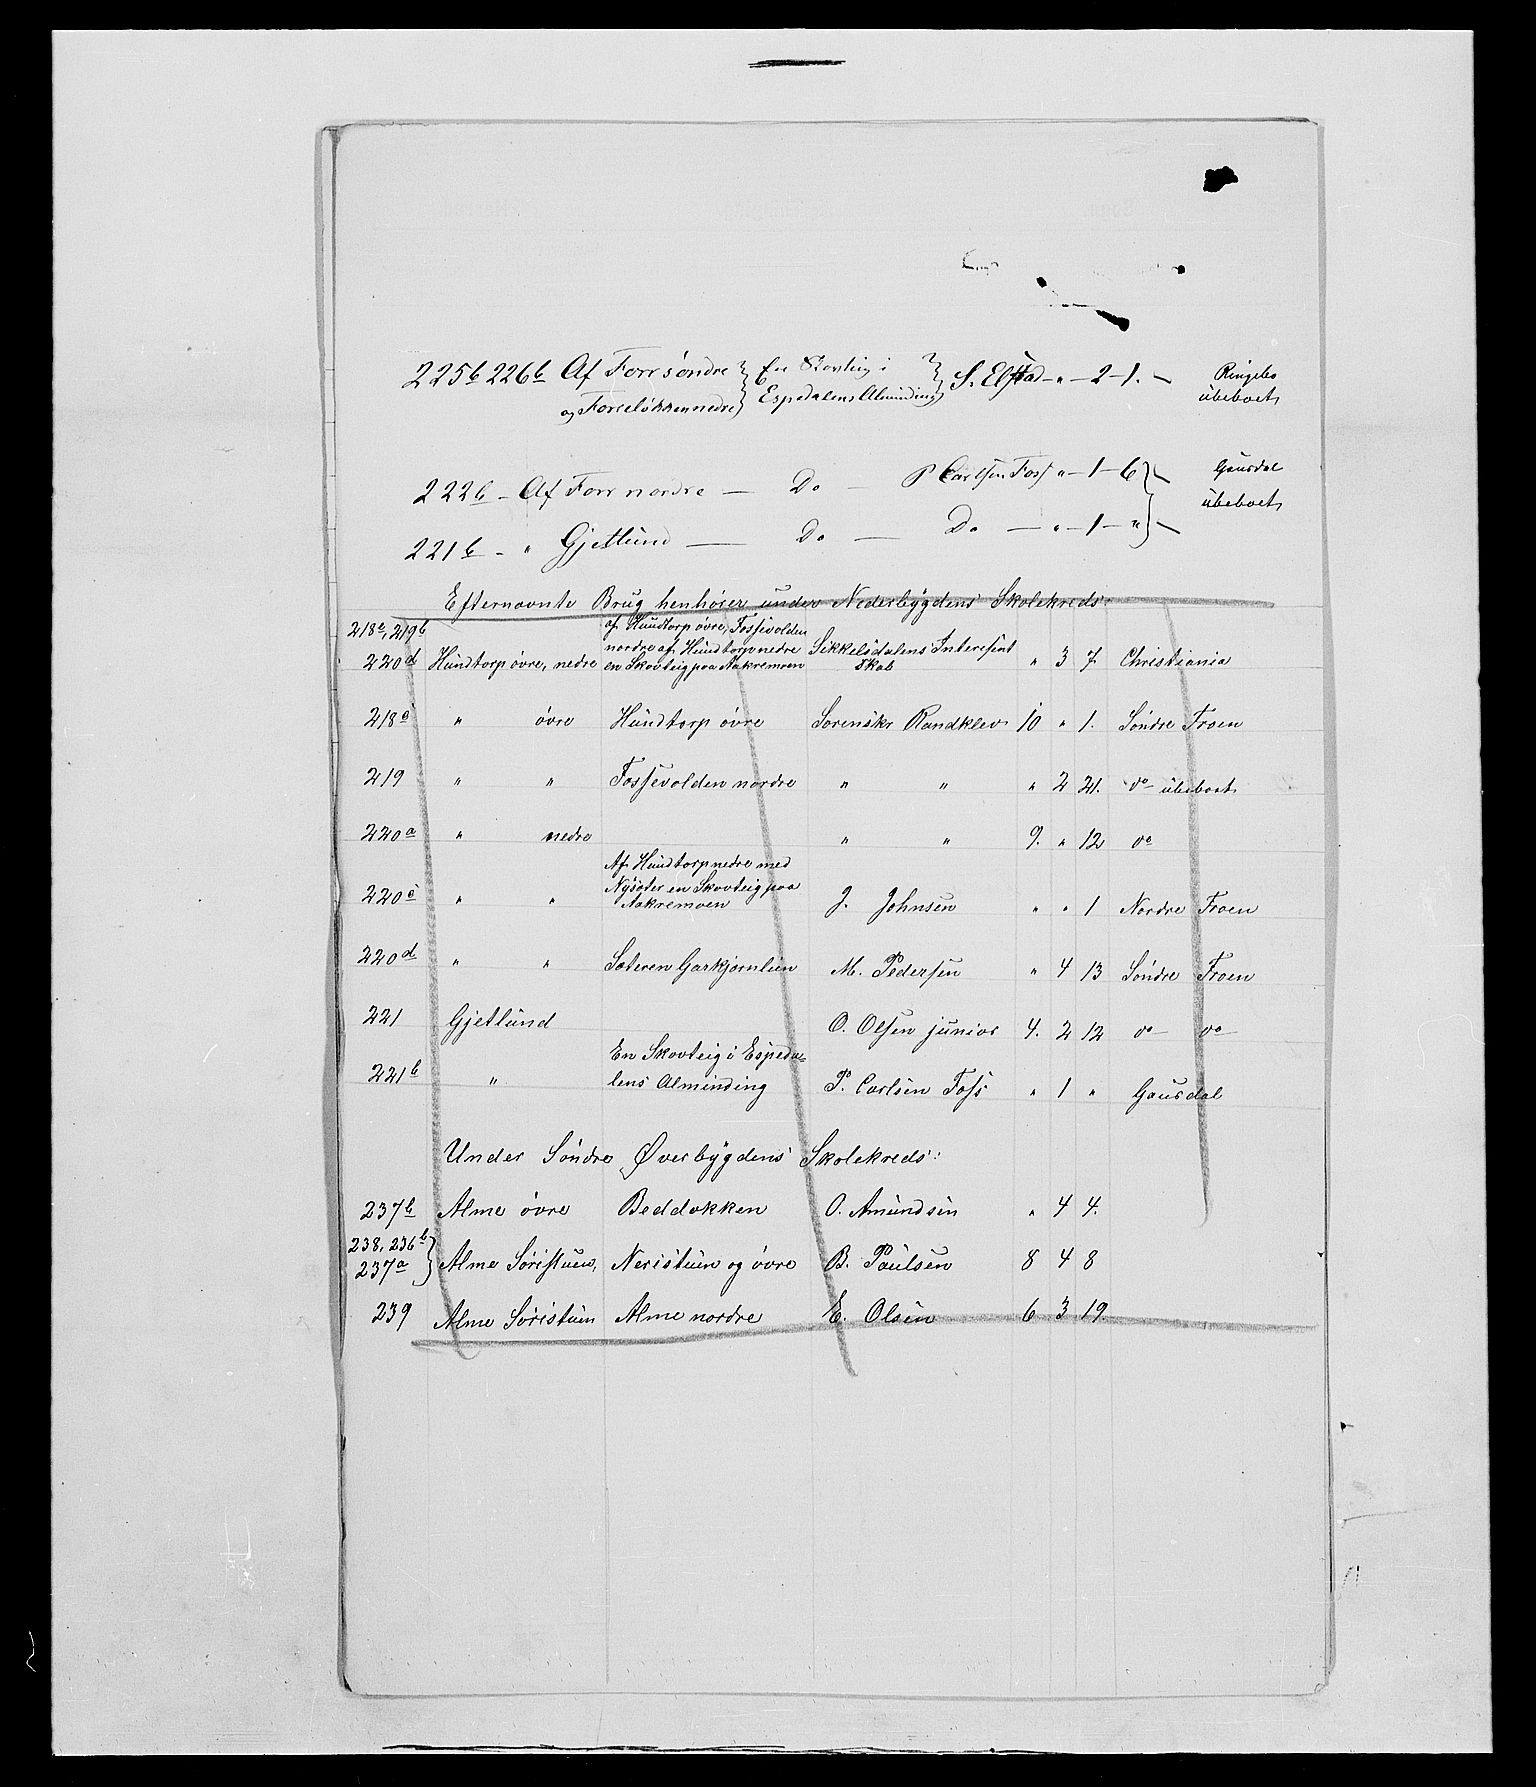 225b 226b Af Forr søndre } En Skovteig i } S. Elstad – " – 2 – 1. – Ringebo
og Forreløkken nedre } Espedalens Alminding } übeboet,
222b – Af Forr nordre — Do — P Carlsen Foss " – 1 – 6 } – Gausdal
221b – " Gjetlund — Do — Do — " – 1 – " } – übeboet,
Efternævnte Brug henhører under Nederbygdens Skolekreds:
218c, 219b af Hundtorp øvre, Fossevolden
nordre af Hundtorp nedre Sikkelsdalens Interesent
220d Hundtorp øvre, nedre en Skovteig paa Aakremoen skab " 3 7 Christiania
218a " øvre Hundtorp øvre Sorenskr Randklev 10 " 1. Søndre Froen
219 " " Fossevolden nordre " " " 2 21. do übeboet
220a " nedre " " 9. " 12 do
Af Hundtorp nedre med
Nysæter en Skovteig paa
220c " " Aakremoen J. Johnsen " " 1 Nordre Froen
220d " " Sæteren Gaskjørnlien M. Pedersen " 4 13 Søndre Froen
221 Gjetlund O. Olsen junior 4. 2 12 do do
En Skovteig i Espeda=
221b " lens Alminding P. Carlsen Foss " 1 " Gausdal
Under Søndre Øverbygdens Skolekreds:
237b Alme øvre Beddokken O. Amundsen " 4 4.
238, 236b }
237a } Alme Søristuen, Neristuen og øvre B. Paulsen 8 4 8
239 Alme Søristuen Alme nordre E. Olsen 6 3 19.